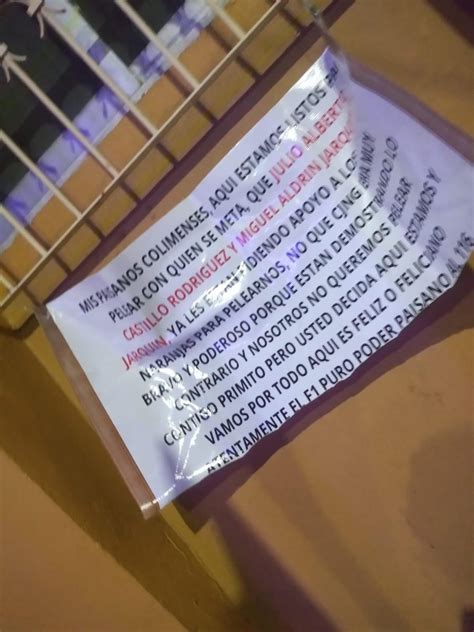 MIS PAISANOS COLIMENSES, AQUI ESTAMOS LISTOS
PELIAR CON QUIEN SE META, QUE JULIO ALBERTO
CASTILLO RODRIGUEZ Y MIGUEL ALDRIN JARQUIN
JARQUIN, YA LES ESTAN PIDIENDO APOYO A LOS
NARANJAS PARA PELEARNOS, NO QUE CJNG MUY
BRAVO Y PODEROSO PORQUE ESTAN DEMOSTRANDO LO
CONTRARIO Y NOSOTROS NO QUEREMOS PELEAR
CONTIGO PRIMITO PERO USTED DECIDA AQUI ESTAMOS Y
VAMOS POR TODO AQUI ES FELIZ O FELICIANO
ATENTAMENTE EL F1 PURO PODER PAISANO AL